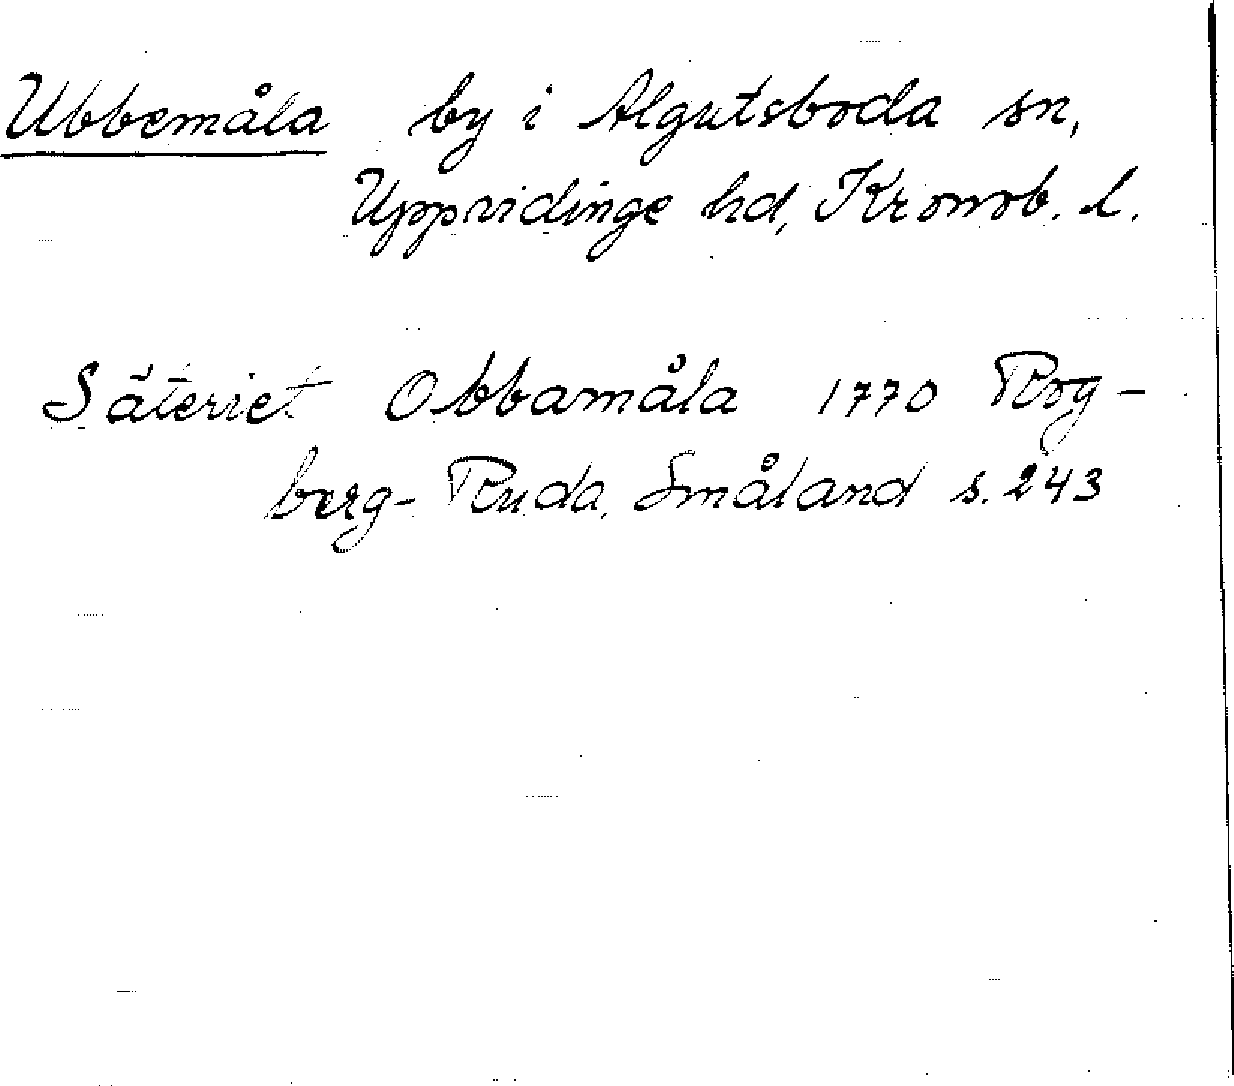 Ubbemåla by i Algutsboda sn,
Uppvidinge hd, Kronob. l.
Säteriet Obbamåla 1770 Rog-
berg-Ruda, Småland s. 243